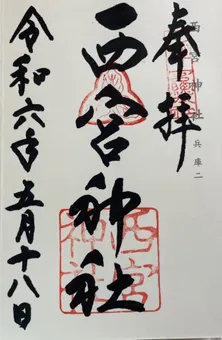 奉拝
西宮神社 兵庫二
西宮神社
令和六年五月十八日
西宮
神社